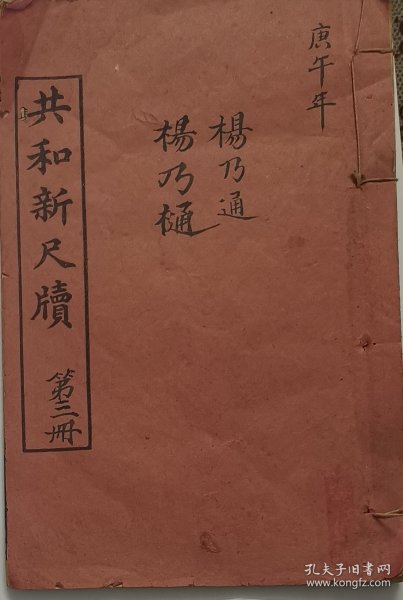 庚午年
楊乃通
楊乃樋
共和新尺牘
第三冊
孔夫子旧书网
www.kongfz.com